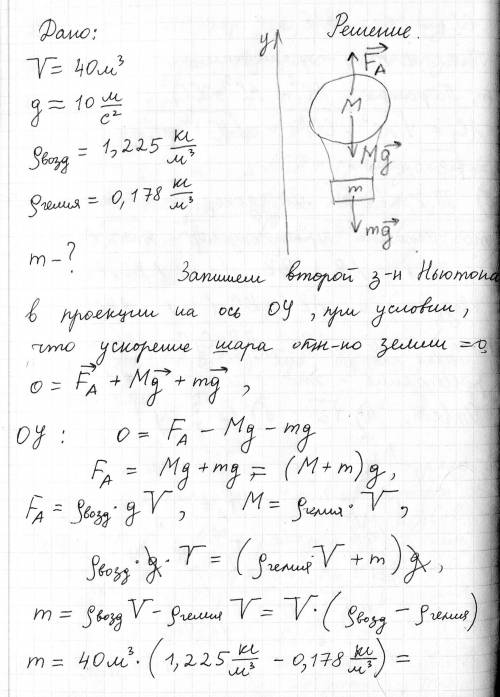 Дано:
Решение.
V = 40 м³
g ≈ 10 м/с²
ρвозд = 1,225 кг/м³
ρгелия = 0,178 кг/м³
m – ?
y
F⃗A
M
Mg⃗
m
mg⃗
Запишем второй з-н Ньютона
в проекции на ось OY, при условии,
что ускорение шара отн-но земли = 0
0 = F⃗A + Mg⃗ + mg⃗,
OY: 0 = FA − Mg − mg
FA = Mg + mg = (M + m) g,
FA = ρвозд · g V, M = ρгелия · V,
ρвозд · g · V = (ρгелия V + m) g,
m = ρвозд V − ρгелия V = V · (ρвозд − ρгелия)
m = 40 м³ · (1,225 кг/м³ − 0,178 кг/м³) =